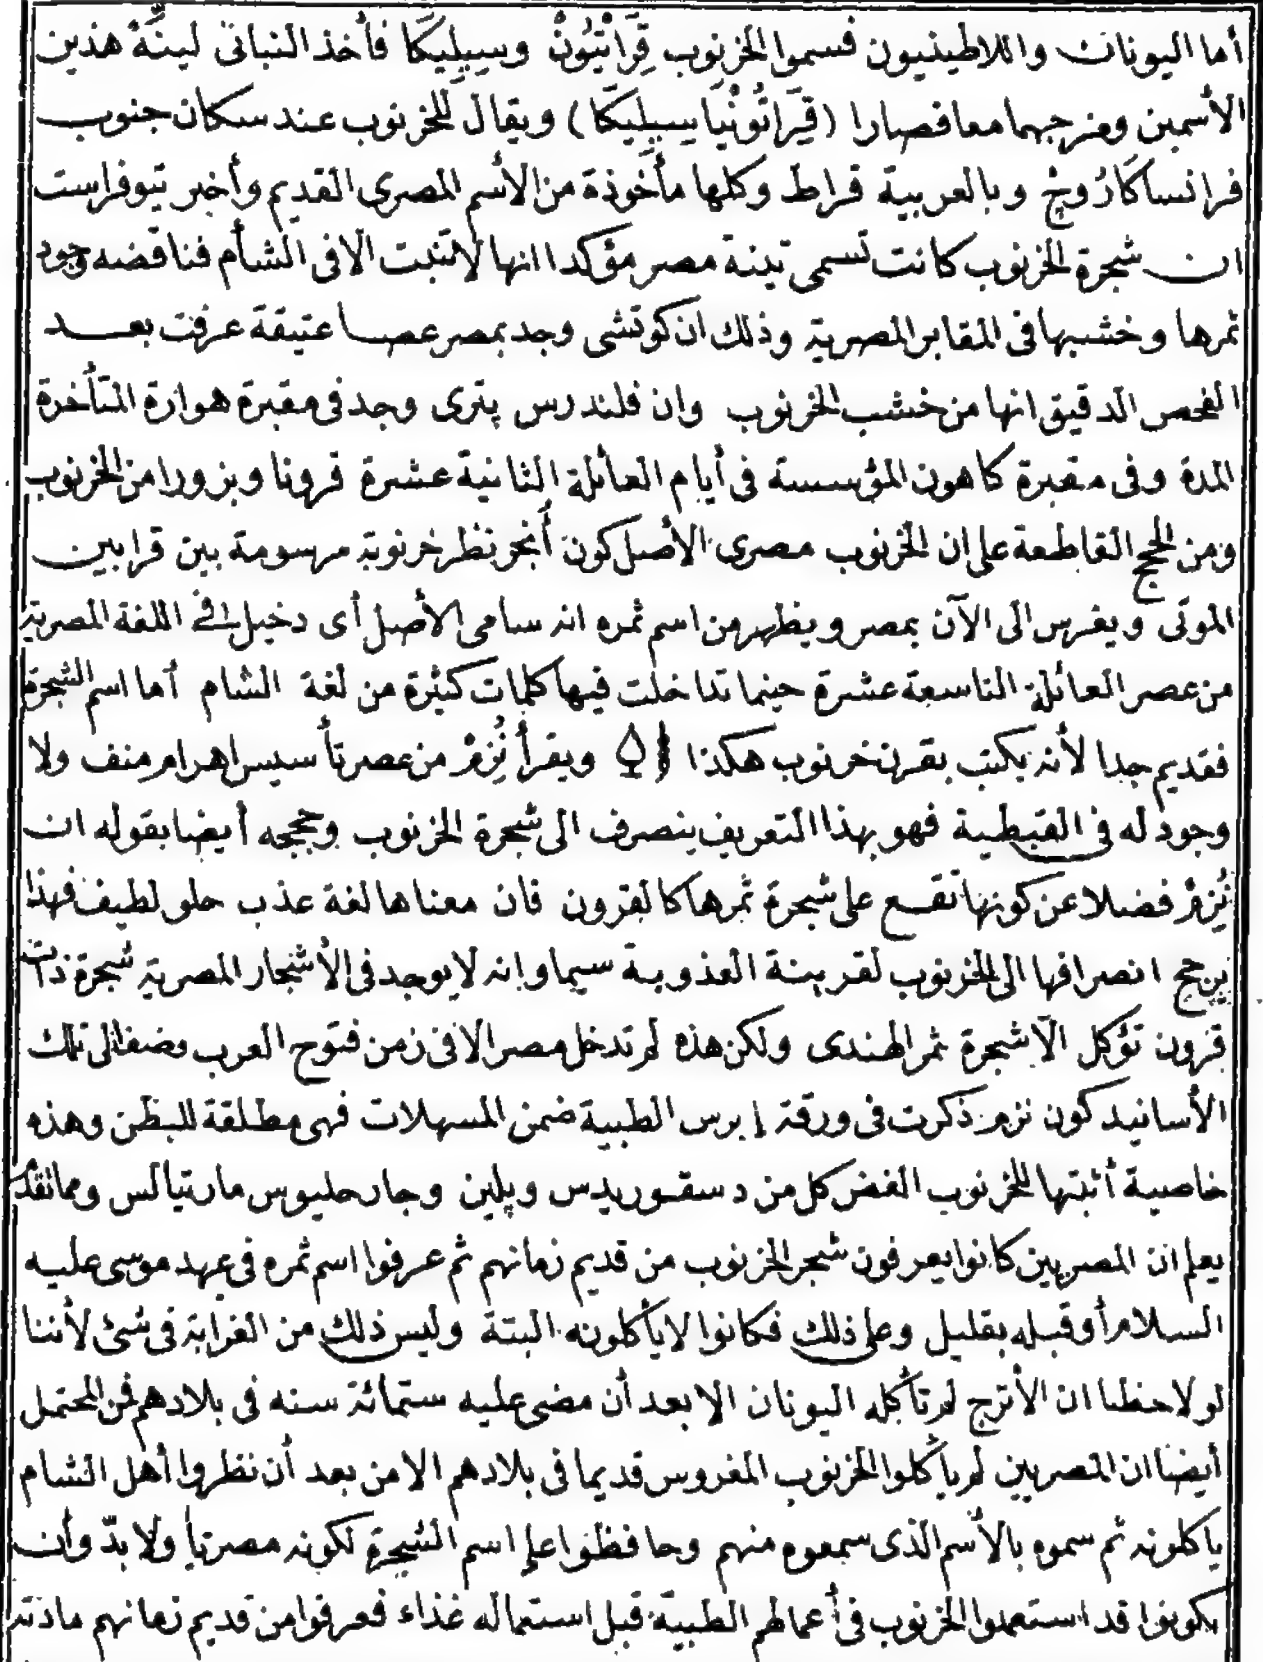 أما اليونان واللاطينيون فسموا الخرنوب قِرَاتْيُونْ وسِيبِليِكَا فأخذ النباتى لينَّهْ هذين
الأسمين ومزجهما معا فصارا (قِرَاتُونْيَا سِيبِليِكَا) ويقال للخرنوب عند سكان جنوب
فرانسا كَارُوچْ وبالعربية قراط وكلها مأخوذة من الأسم المصرى القديم وأخبر تيوفراست
ان شجرة الخرنوب كانت تسمى تينة مصر مؤكدا انها لا تنبت الا فى الشأم فناقضه وجود
ثمرها وخشبها فى المقابر المصرية وذلك ان كوتشى وجد بمصر عصا عتيقة عرفت بعد
الفحص الدقيق انها من خشب الخرنوب وان فلندرس پترى وجد فى مقبرة هوارة المتأخرة
المدة وفى مقبرة كاهون المؤسسة فى أيام العائلة الثانية عشرة قرونا وبزورا من الخرنوب
ومن الحجج القاطعة على ان الخرنوب مصرى الأصل كون أنجر نظر خرنوبة مرسومة بين قرابين
الموتى ويغرس الى الآن بمصر ويظهر من اسم ثمره انه سامى الأصل أى دخيل فى اللغة المصرية
من عصر العائلة التاسعة عشرة حينما تداخلت فيها كلمات كثيرة من لغة الشام أما اسم الشجرة
فقديم جدا لأنه يكتب بقرن خرنوب هكذا ويقرأ نُزِمْ من عصر تأسيس اهرام منف ولا
وجود له فى القبطية فهو بهذا التعريف ينصرف الى شجرة الخرنوب وحججه أيضا بقوله ان
نُزِمْ فضلا عن كونها تقع على شجرة ثمرها كالقرون فان معناها لغة عذب حلو لطيف فهذا
يرجح انصرافها الى الخرنوب لقرينة العذوبة سيما وانه لا يوجد فى الأشجار المصرية شجرة ذات
قرون تؤكل الا شجرة تمر الهندى ولكن هذه لم تدخل مصر الا فى زمن فتوح العرب وضف الى تلك
الأسانيد كون نزم ذكرت فى ورقة إبرس الطبية ضمن المسهلات فهى مطلقة للبطن وهذه
خاصية أثبتها للخرنوب الغض كل من دسقوريدس وپلين وجارحليوس مارتيالس ومما تقدم
يعلم ان المصريين كانوا يعرفون شجر الخرنوب من قديم زمانهم ثم عرفوا اسم ثمره فى عهد موسى عليه
السلام أو قبله بقليل وعلى ذلك فكانوا لا يأكلونه البتة وليس ذلك من الغرابة فى شئ لأننا
لو لاحظنا ان الأترج لم تأكله اليونان الا بعد أن مضى عليه ستمائة سنه فى بلادهم فمن المحتمل
أيضا ان المصريين لم يأكلوا الخرنوب المغروس قديما فى بلادهم الا من بعد أن نظروا أهل الشام
ياكلونه ثم سموه بالأسم الذى سمعوه منهم وحافظوا على اسم الشجرة لكونه مصريا ولا بدّ وأن
يكونوا قد استعملوا الخرنوب فى أعمالهم الطبية قبل استعماله غذاء فعرفوا من قديم زمانهم مادته